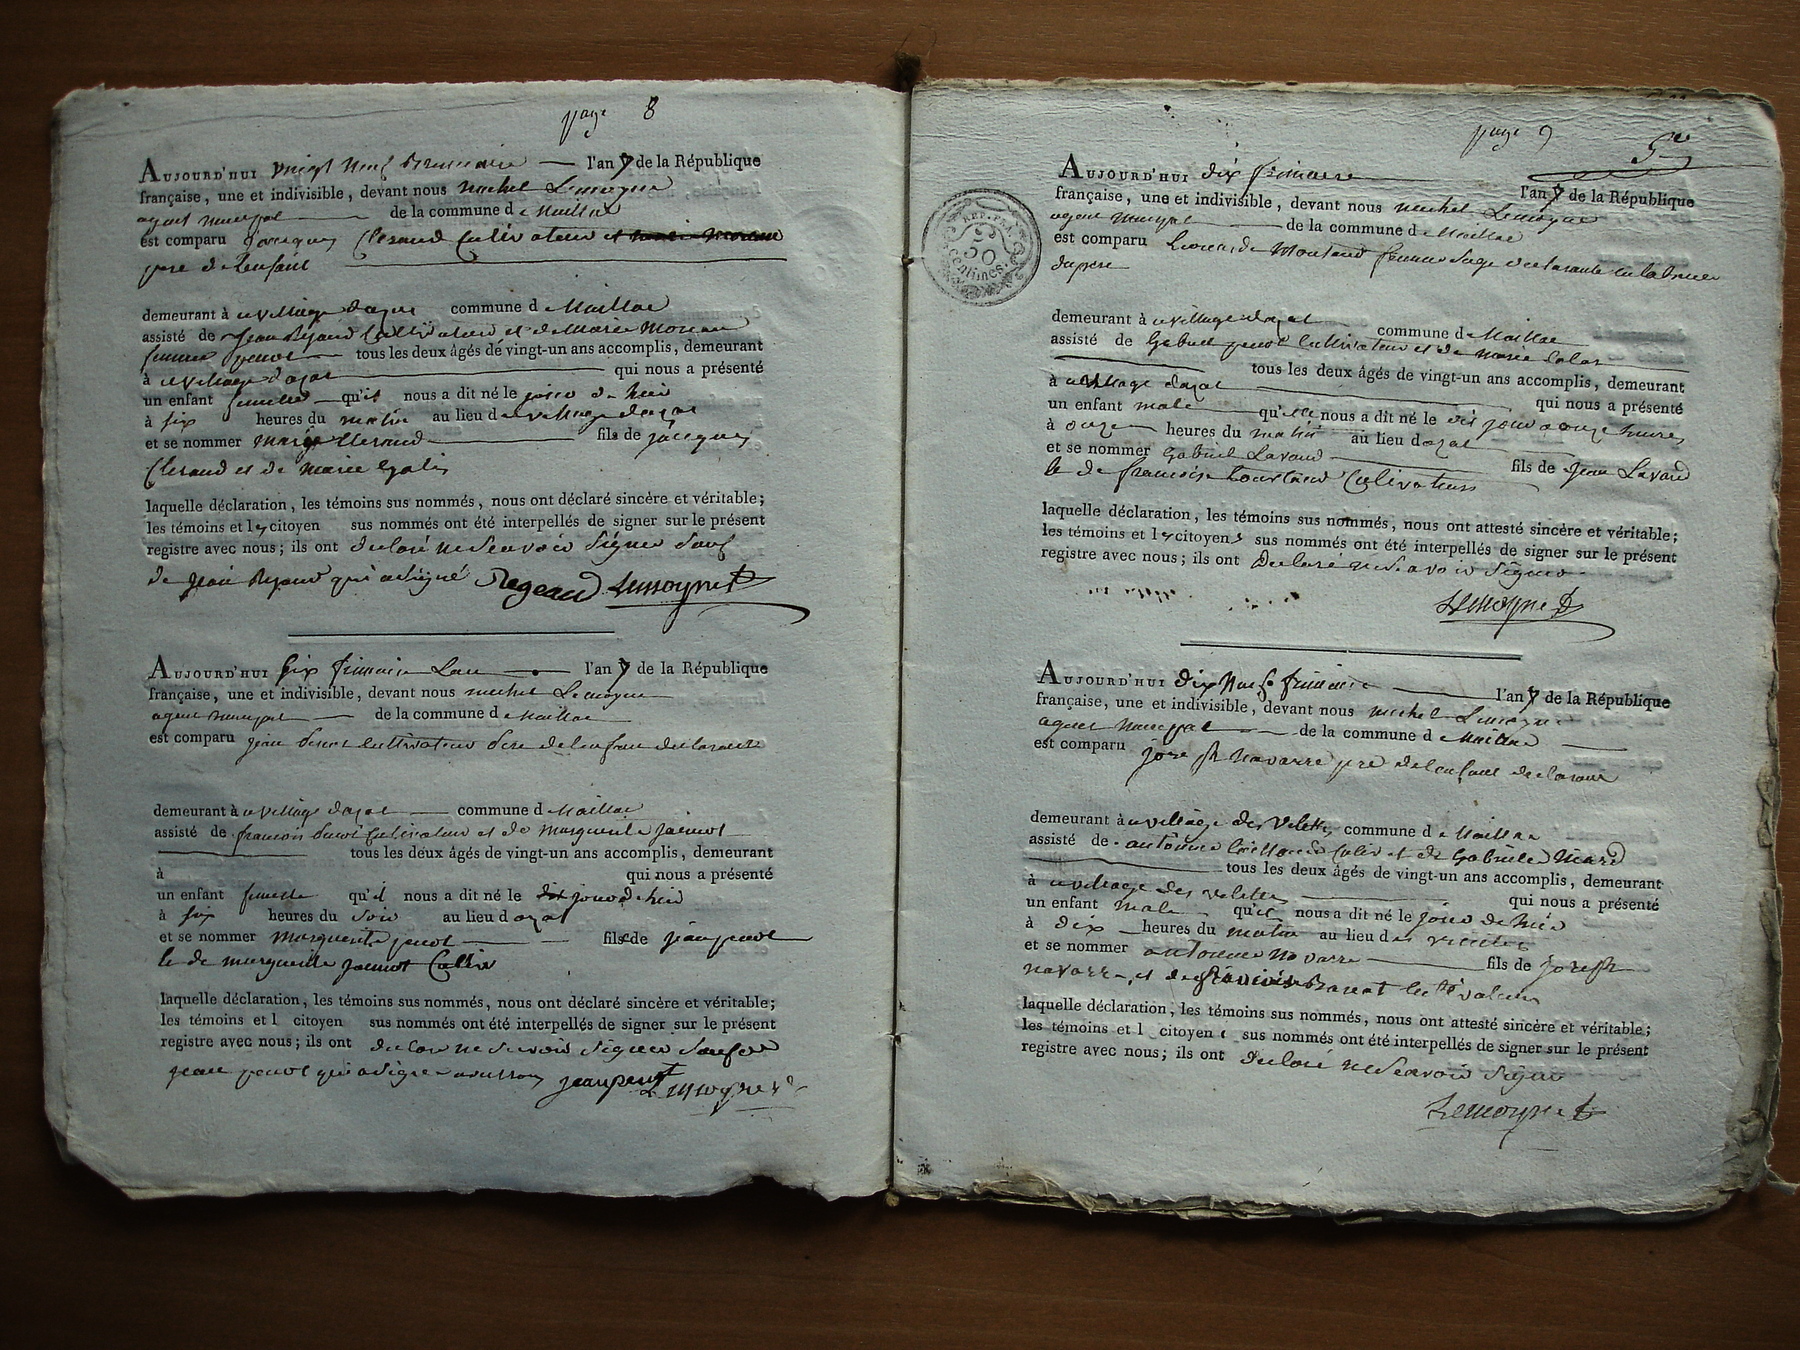 page 8
AUJOURD'HUI vingt neuf brumaire l'an 7 de la République
française, une et indivisible, devant nous michel Lemoyne
agent municipal de la commune d Maillac
est comparu Jacques Cultivateur et
pere de Lenfant
demeurant à village dazat commune d Maillac
assisté de Jean Rejaud Cultivateur et de Marie Moreau
femme penot tous les deux âgés de vingt-un ans accomplis, demeurant
à village dazat qui nous a présenté
un enfant femelle qu'il nous a dit né le jour de hier
à six heures du matin au lieu d village dazat
et se nommer marie fils de jacques
et de marie
laquelle déclaration, les témoins sus nommés, nous ont déclaré sincère et véritable;
les témoins et les citoyen sus nommés ont été interpellés de signer sur le présent
registre avec nous; ils ont declaré ne Scavoir Signer Sauf
de jean Rejaud qui a Signé Regeaud Lemoyne
AUJOURD'HUI Six frimaire Lan l'an 7 de la République
française, une et indivisible, devant nous michel Lemoyne
agent municipal de la commune d Maillac
est comparu jean penot Cultivateur pere de lenfant declarant
demeurant à village dazat commune d Maillac
assisté de francois penot Cultivateur et de Marguerite
tous les deux âgés de vingt-un ans accomplis, demeurant
à qui nous a présenté
un enfant femelle qu'il nous a dit né le jour d hier
à six heures du Soir au lieu d azat
et se nommer marguerite penot fils de jean penot
et de marguerite
laquelle déclaration, les témoins sus nommés, nous ont déclaré sincère et véritable;
les témoins et l citoyen sus nommés ont été interpellés de signer sur le présent
registre avec nous; ils ont declare ne Scavoir Signer Sauf
jean penot qui a Signe jean penot
Lemoyne
page 9
5
REP. FRA.
50
centimes.
AUJOURD'HUI dix frimaire l'an 7 de la République
française, une et indivisible, devant nous michel Lemoyne
agent municipal de la commune d Maillac
est comparu femme Sage declarante en labsence
du pere
demeurant à village dazat commune d Maillac
assisté de Gabriel penot Cultivateur et de marie
tous les deux âgés de vingt-un ans accomplis, demeurant
à village dazat qui nous a présenté
un enfant male qu'elle nous a dit né le dis jour a onze heures
à onze heures du matin au lieu d azat
et se nommer Gabriel Lavaud fils de Jean Lavaud
de Cultivateurs
laquelle déclaration, les témoins sus nommés, nous ont attesté sincère et véritable;
les témoins et les citoyens sus nommés ont été interpellés de signer sur le présent
registre avec nous; ils ont Declaré ne Scavoir Signer
Lemoyne
AUJOURD'HUI dix Neuf frimaire l'an 7 de la République
française, une et indivisible, devant nous michel Lemoyne
agent municipal de la commune d Maillac
est comparu joseph Navarre pere de lenfant declarant
demeurant à village des commune d Maillac
assisté de antoinne et de Gabriele
tous les deux âgés de vingt-un ans accomplis, demeurant
à village des qui nous a présenté
un enfant male qu'il nous a dit né le jour de hier
à dix heures du matin au lieu des
et se nommer antoinne navarre fils de joseph
navarre et de Cultivateurs
laquelle déclaration, les témoins sus nommés, nous ont attesté sincère et véritable;
les témoins et l citoyen sus nommés ont été interpellés de signer sur le présent
registre avec nous; ils ont declaré ne Scavoir Signer
Lemoyne